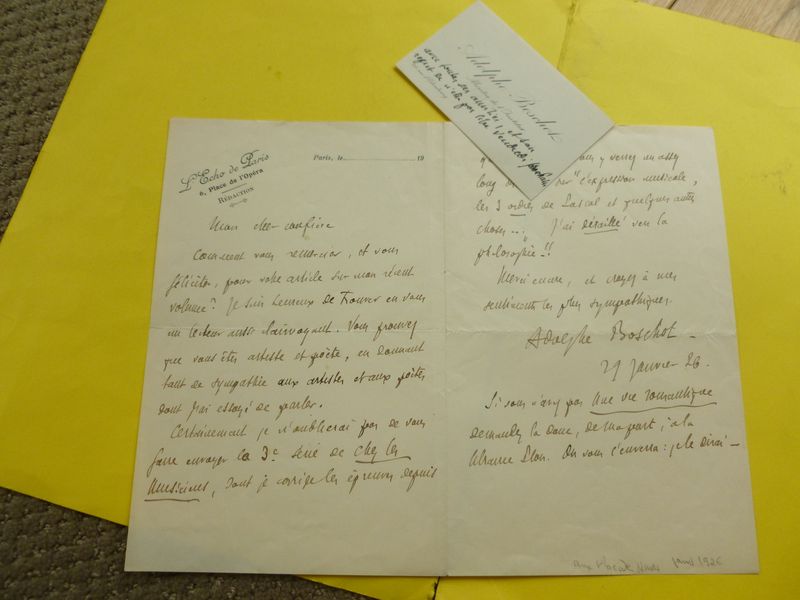 L'Echo de Paris
6, Place de l'Opéra
RÉDACTION
Paris, le 19
Mon cher confrère
Comment vous remercier, et vous
féliciter, pour votre article sur mon récent
volume? Je suis heureux de trouver en vous
un lecteur aussi clairvoyant. Vous prouvez
que vous êtes artiste et poète, en donnant
tant de sympathie aux artistes et aux poètes
dont j'ai essayé de parler.
Certainement je n'oublierai pas de vous
faire envoyer la 3e série de Chez les
Musiciens, dont je corrige les épreuves depuis
y verrez un assez
long "l'expression musicale,
les 3 ordres de Pascal et quelques autres
choses... J'ai déraillé vers la
philosophie!!
Merci encore, et croyez à mes
sentiments les plus sympathiques.
Adolphe Boschot
29 Janvier 26.
Si vous n'avez pas Une vie romantique
demandez la donc, de ma part, à la
librairie Plon. On vous l'enverra: je le dirai
Adolphe Boschot
avec toutes ses amitiés, et son
regret de n'être pas libre Vendredi prochain
Janv 1926